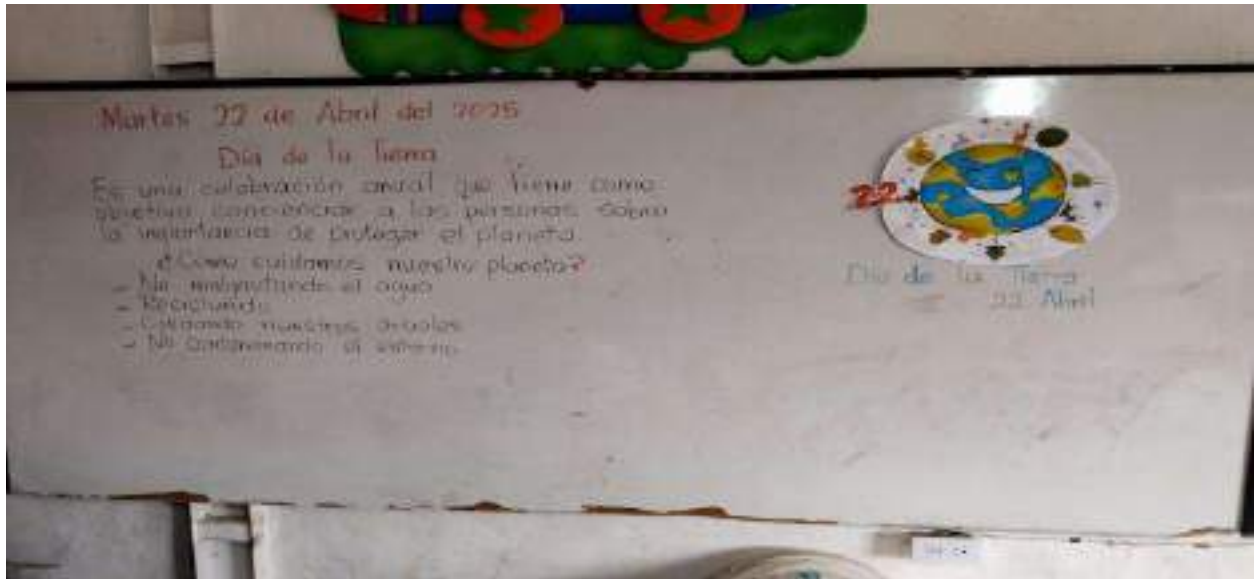 Martes 22 de Abril del 2025
Día de la Tierra
Es una celebración anual que tiene como
objetivo concienciar a las personas sobre
la importancia de proteger el planeta.
¿Cómo cuidamos nuestro planeta?
- No malgastando el agua
- Reciclando
- Cuidando nuestros árboles
- No contaminando el entorno
22
Día de la Tierra
22 Abril